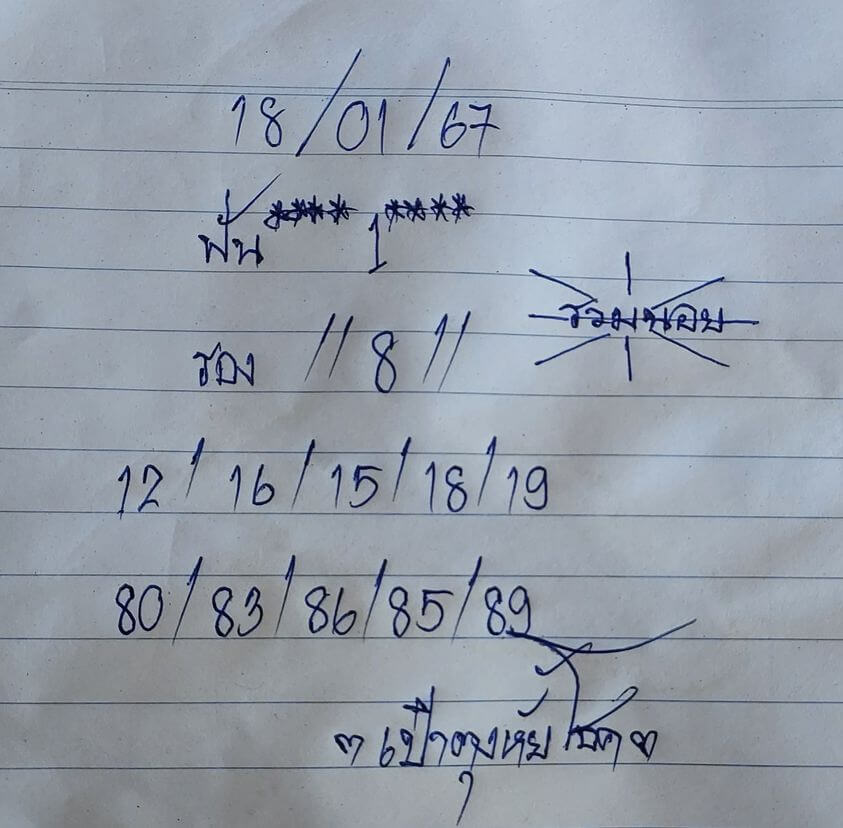 18/01/67
ฟัน **** 1 ****
รวมหนอย
รอง // 8 //
12/16/15/18/19
80/83/86/85/89
เป๋าตุงหัย โชค